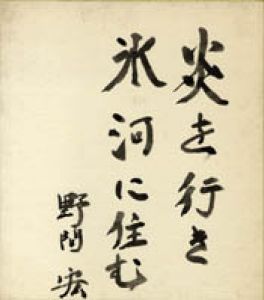 炎を行き
氷河に住む
野間宏